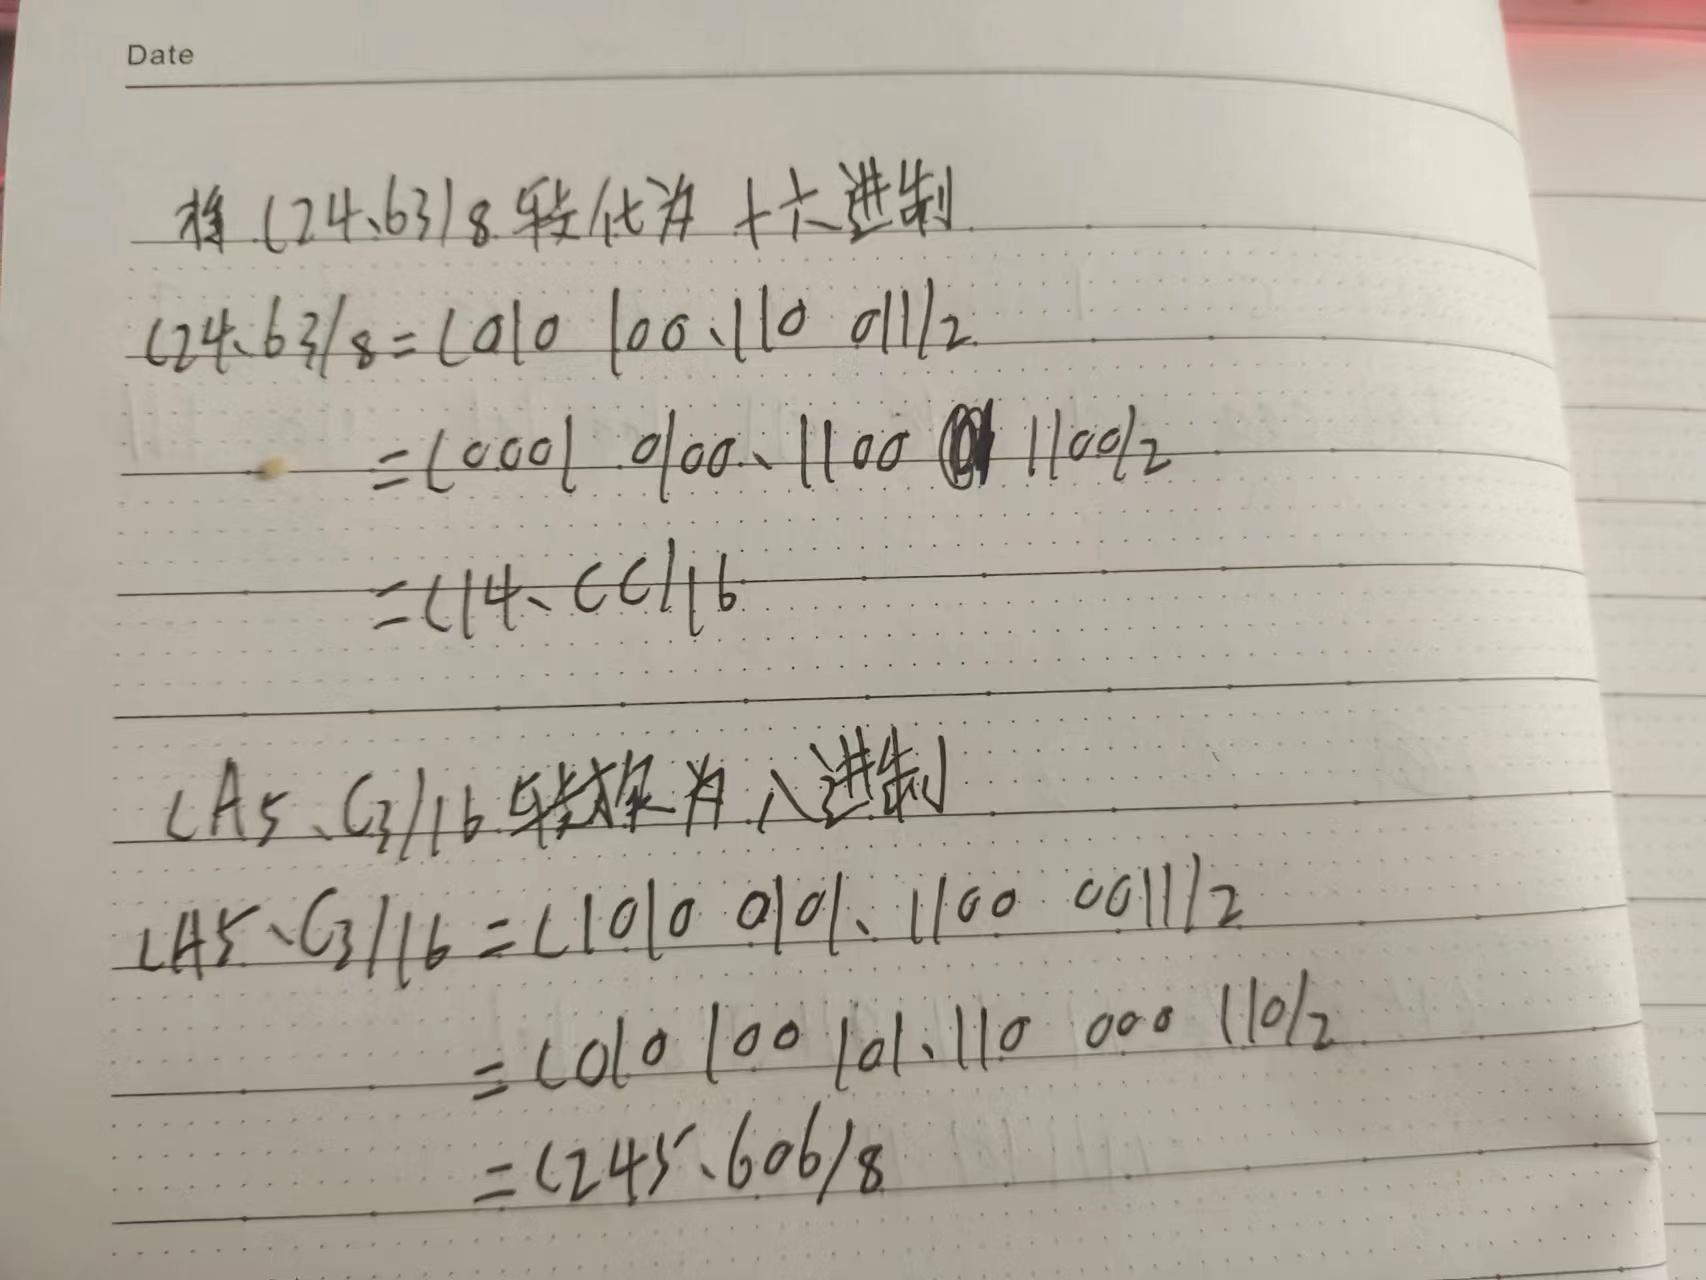 Date
将(24.63)8转化为十六进制
(24.63)8=(010 100.110 011)2
=(0001 0100.1100 1100)2
=(14.CC)16
(A5.C3)16转换为八进制
(A5.C3)16=(1010 0101.1100 0011)2
=(010 100 101.110 000 110)2
=(245.606)8